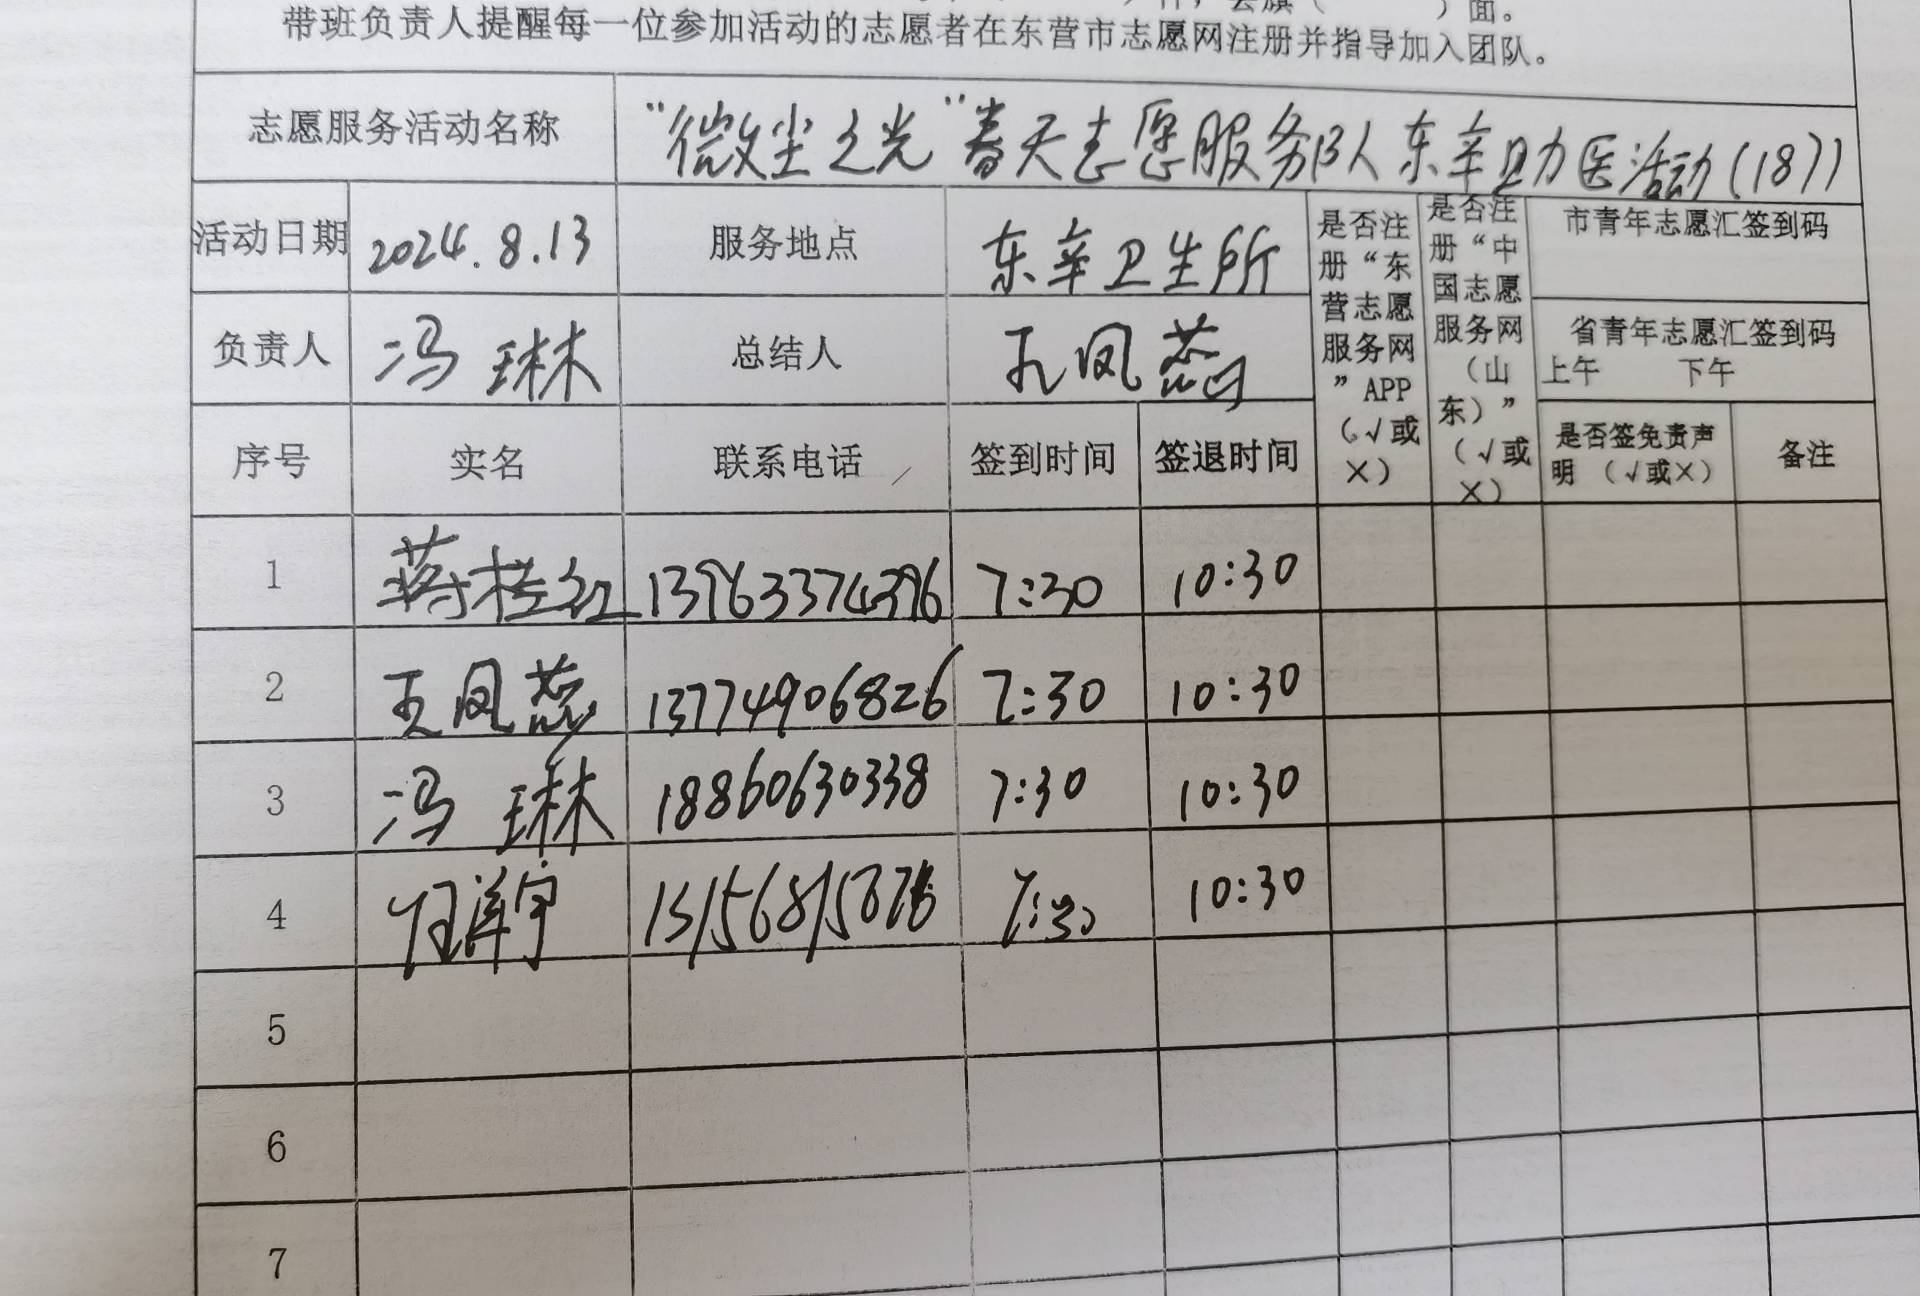 面。
带班负责人提醒每一位参加活动的志愿者在东营市志愿网注册并指导加入团队。
志愿服务活动名称 “微尘之光”春天志愿服务队东辛助医活动(187)
活动日期 2024.8.13 服务地点 东辛卫生所
是否注册“东营志愿服务网”APP（√或×）
是否注册“中国志愿服务网（山东）”（√或×）
市青年志愿汇签到码
负责人 冯琳 总结人 王凤蕊
省青年志愿汇签到码
上午 下午
序号 实名 联系电话 签到时间 签退时间 是否签免责声明（√或×） 备注
1 蒋桂红 13963374396 7:30 10:30
2 王凤蕊 13774906826 7:30 10:30
3 冯琳 18860630338 7:30 10:30
4 7:30 10:30
5
6
7